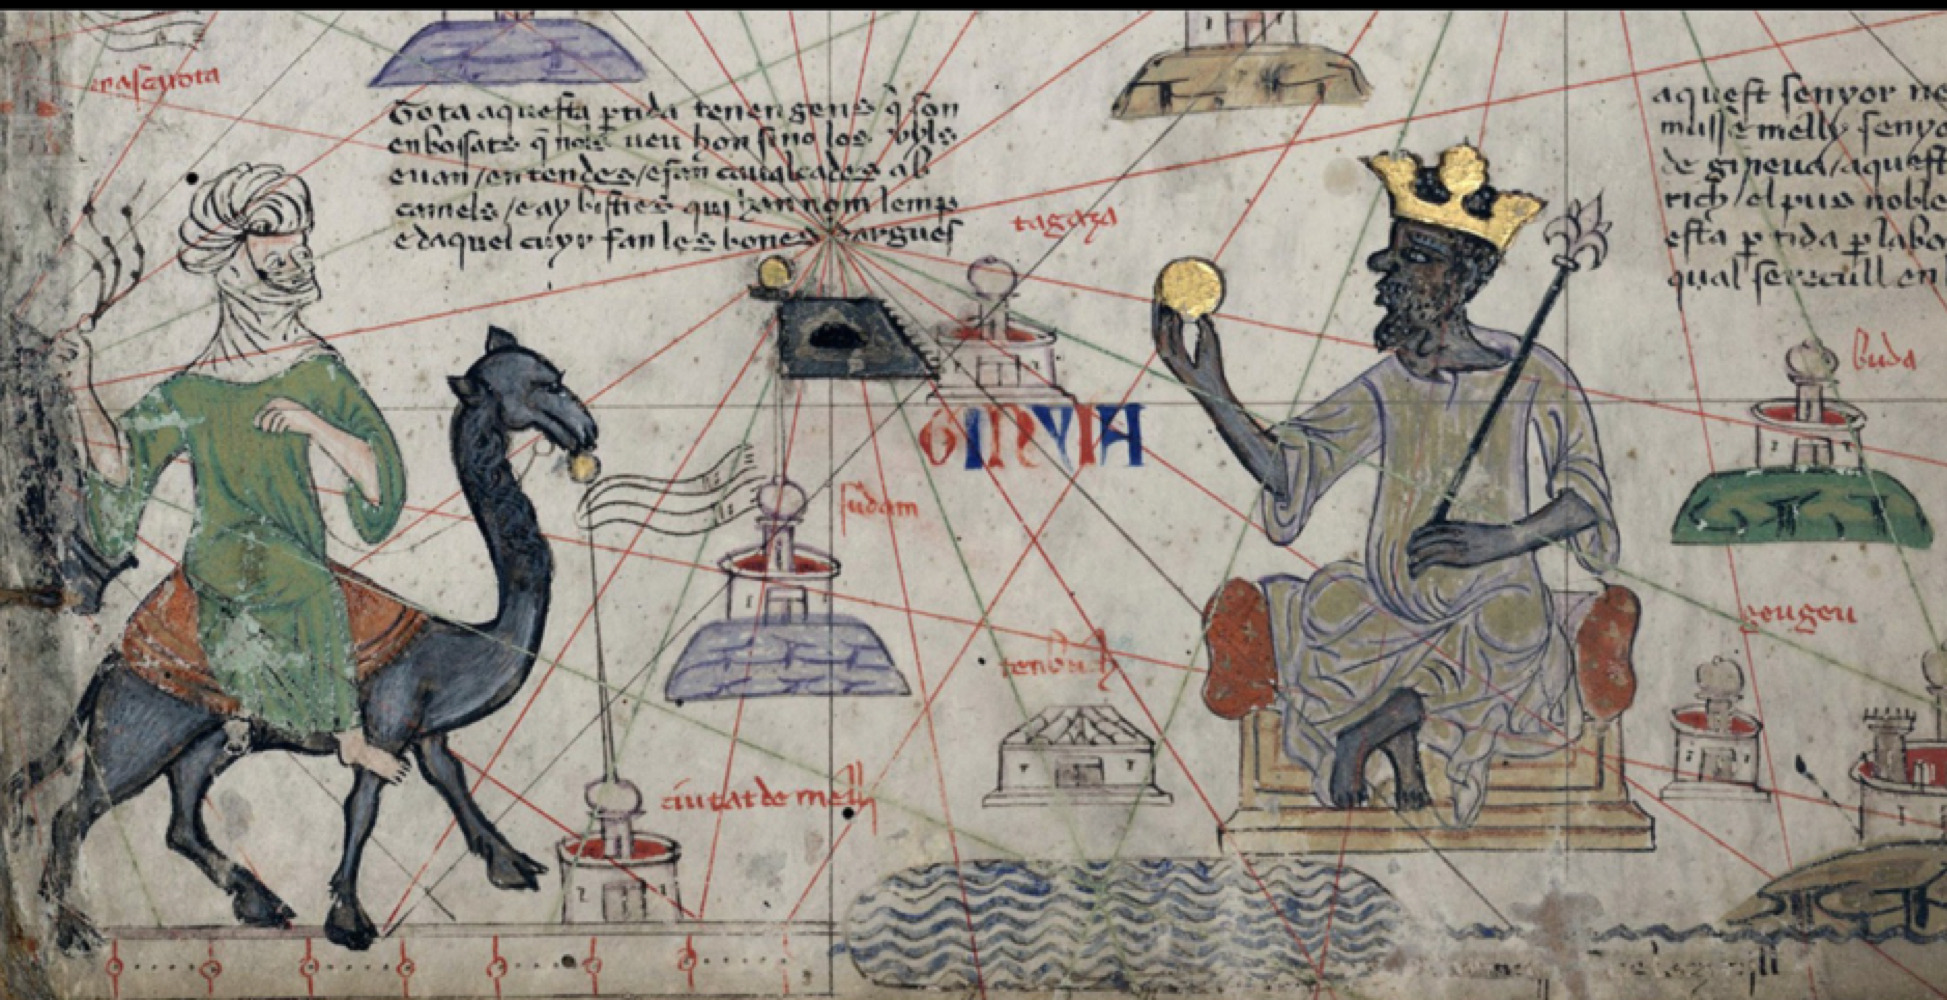 Tota aquesta ptida tenen gens q̄ son
enbossats q̄ nols ueu hon sino los uyls
euan / en tendes / e fan caualcades ab
camels / e ay bisties qui han nom lemp
e daquel cuyr fan les bones dargues
tagaza
aquest senyor ne
musse melly senyo
de gineua / aquest
rich / el pus noble
esta ptida p labo
qual se recull en
buda
GINYIA
sudam
geugeu
tenbuch
ciutat de melli